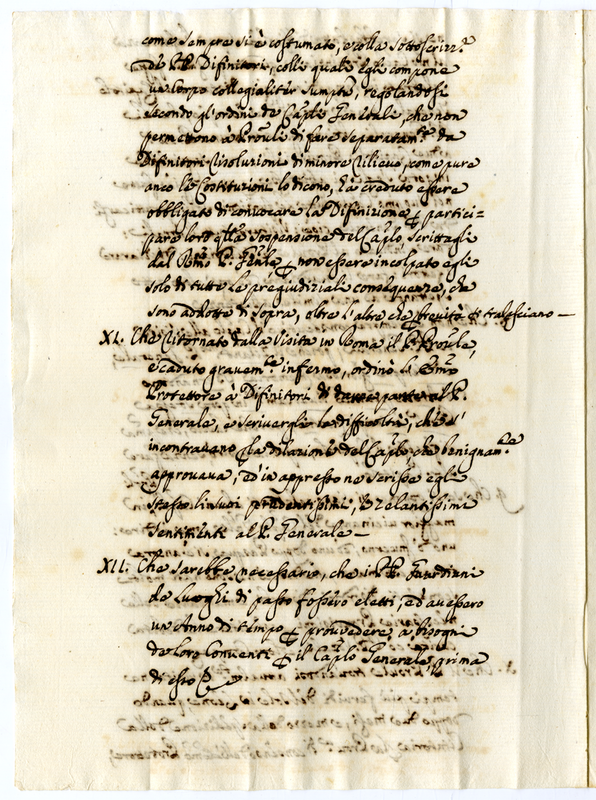 come sempre si è costumato, e colla sottoscrizz.e
de PP. Difinitori, colli quali Egli compone
un Corpo collegialiter sumpto, regolandosi
secondo gl'ordini de Capli Generali, che non
permettono à Prouli di fare separatam.te da
Difinitori risoluzioni di minore rilievo, come pure
anco le Costituzioni lo dicono, hà creduto essere
obbligato di convocare la Difinizione, e partici=
pare loro qlla sospensione del Caplo scrittagli
dal Rmo P. Gnle p non essere incolpato egli
solo di tutte le pregiudiziali conseguenze, che
sono addotte di sopra, oltre l'altre che p brevità si tralasciano —
XI. Che ritornato dalla Visita in Roma il P. Proule,
e caduto gravem.te infermo, ordinò l' Emo
Protettore à Difinitori di dare parte al P.
Generale, e scrivergli le difficoltà, che s'
incontravano p la dilazione del Caplo, che benignam.te
approvava, ed in appresso ne scrisse egli
stesso li suoi prudentissimi, e zelantissimi
sentimenti al P. Generale —
XII. Che sarebbe necessario, che i PP. Guardiani
de Luoghi di pasto fossero eletti, ed avessero
un Anno di tempo p provvedere a bisogni
de loro Conventi p il Caplo Generale, prima
di esso